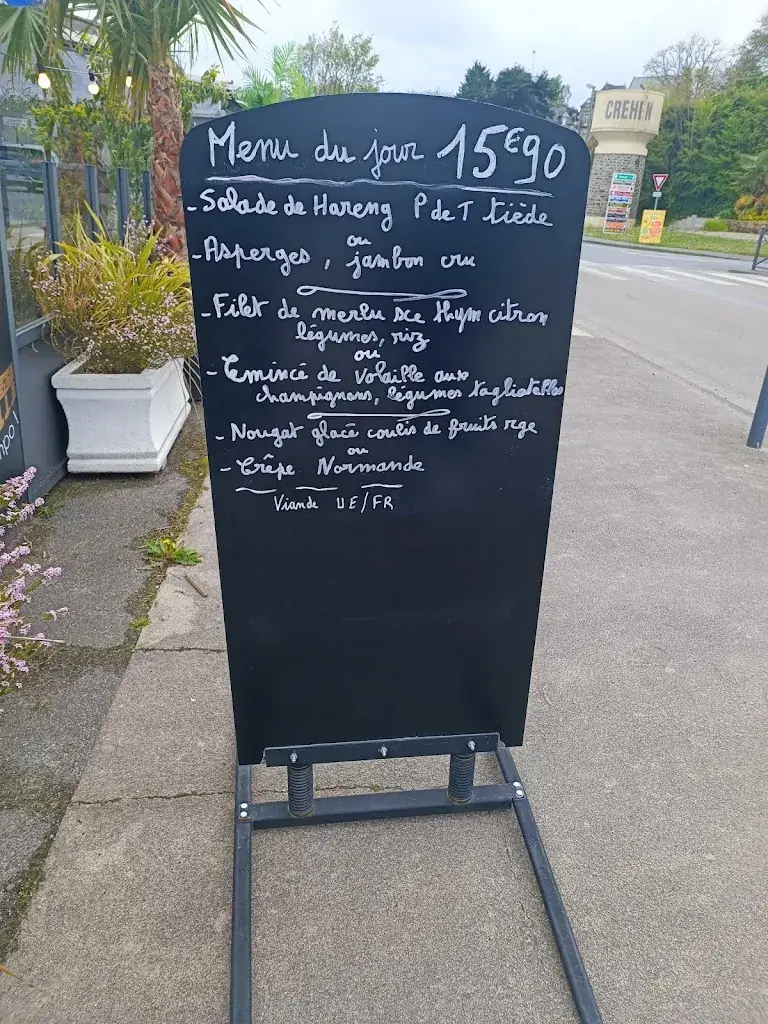 Menu du jour 15€90
- Salade de Hareng P de T tiède
ou
- Asperges, jambon cru
- Filet de merlu sce thym citron
légumes, riz
ou
- Emincé de Volaille aux
champignons, légumes tagliatelles
- Nougat glacé coulis de fruits rge
ou
- Crêpe Normande
Viande UE/FR
CREHEN